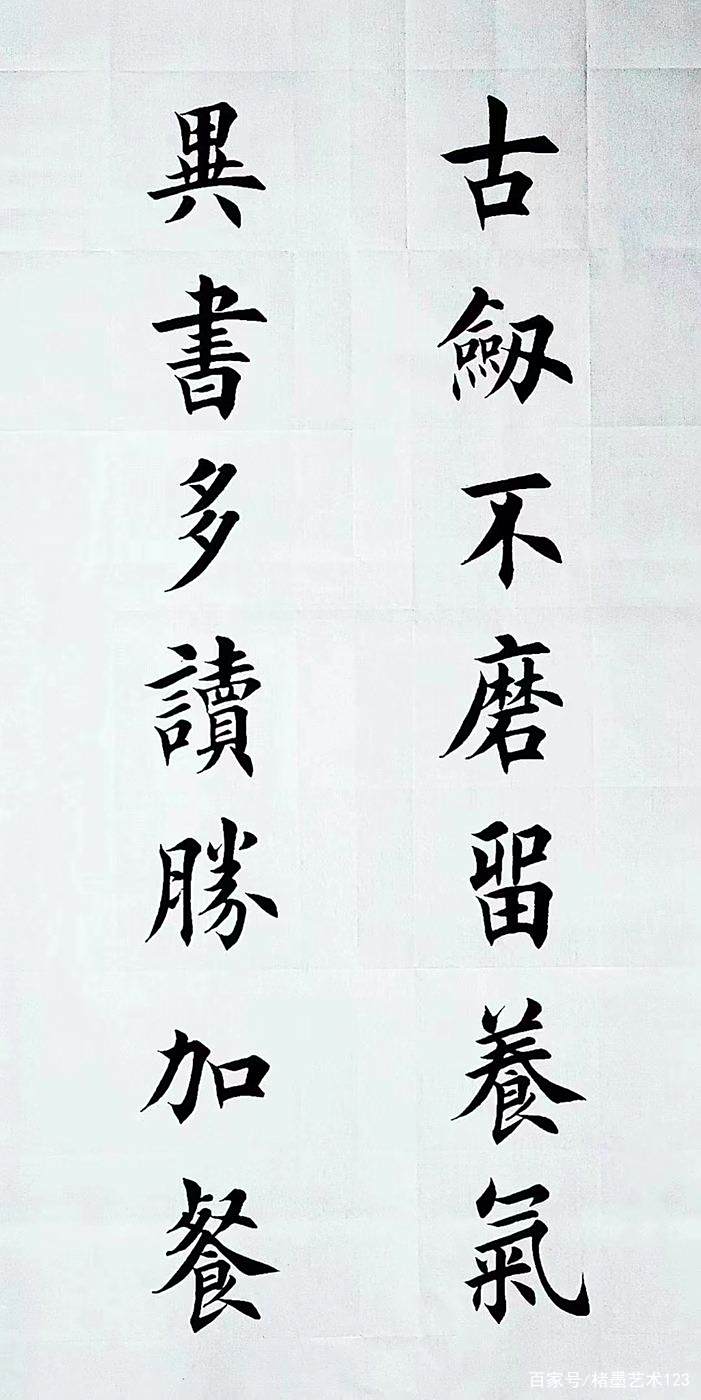 古劒不磨留養氣
異書多讀勝加餐
百家号/楮墨艺术123